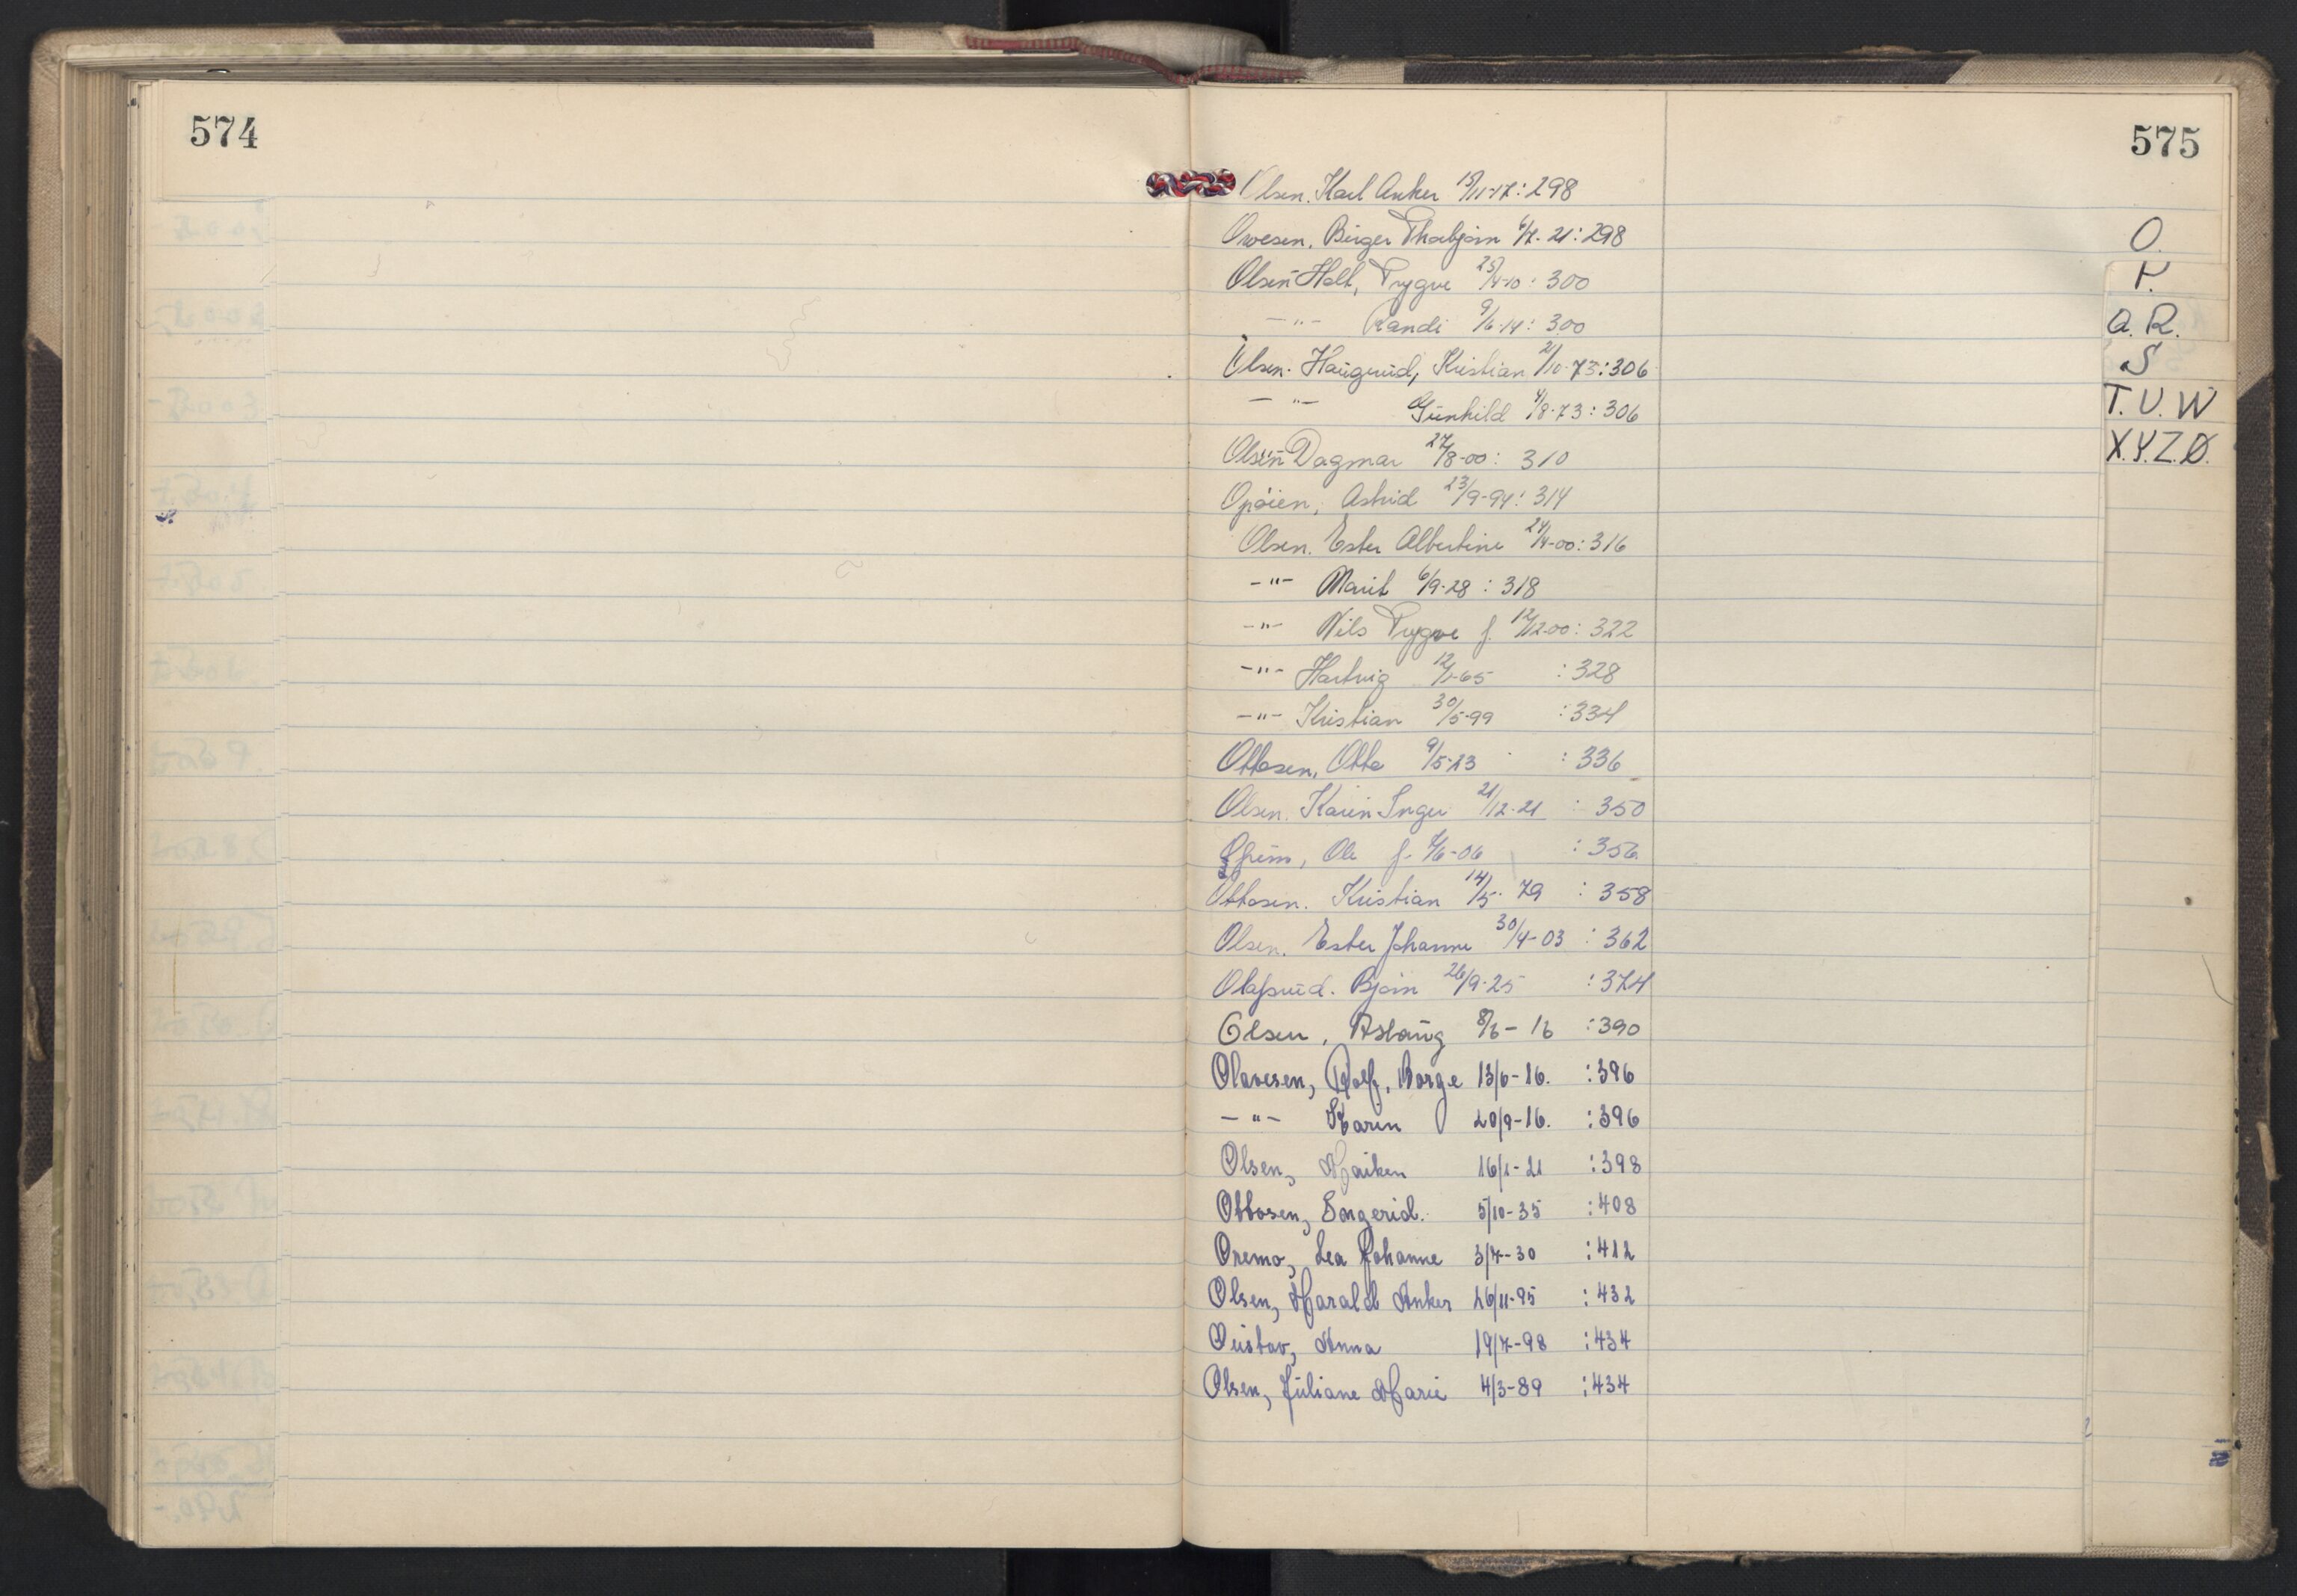 574
575
Olsen. Karl Anker 15/11-17 : 298
Owesen, Birger Thorbjørn 6/7-21 : 298
Olsen Holt, Trygve 25/4-10 : 300
-"- Randi 9/6-14 : 300
Olsen. Haugerud, Kristian 2/10-73 : 306
-"- Gunhild 4/8-73 : 306
Olsen Dagmar 27/8-00 : 310
Opøien, Astrid 23/9-94 : 314
Olsen. Ester Albertine 24/4-00 : 316
-"- Marit 6/9-28 : 318
-"- Nils Trygve f. 12/12-00 : 322
-"- Hartvig 12/1-65 : 328
-"- Kristian 30/5-99 : 334
Ottosen, Otto 9/5-23 : 336
Olsen. Karin Inger 21/12-21 : 350
Ole f. /6-06 : 356
Ottosen. Kristian 14/5-79 : 358
Olsen. Ester Johanne 30/4-03 : 362
Olafsrud. Bjørn 26/9-25 : 374
Olsen, Aslaug 8/6-16 : 390
Olavesen, Rolf, Borge 13/6-16. : 396
-"- Karen 20/9-16. : 396
Olsen, Maiken 16/1-21 : 398
Ottosen, Ingerid. 5/10-35 : 408
Oremo, Lea Johanne 3/7-30 : 412
Olsen, Harald Anker 26/11-95 : 432
Oustav, Anna 19/7-98 : 434
Olsen, Juliane Marie 4/3-89 : 434
O.
P.
Q. R.
S
T. U. W
X. Y. Z. Ø.